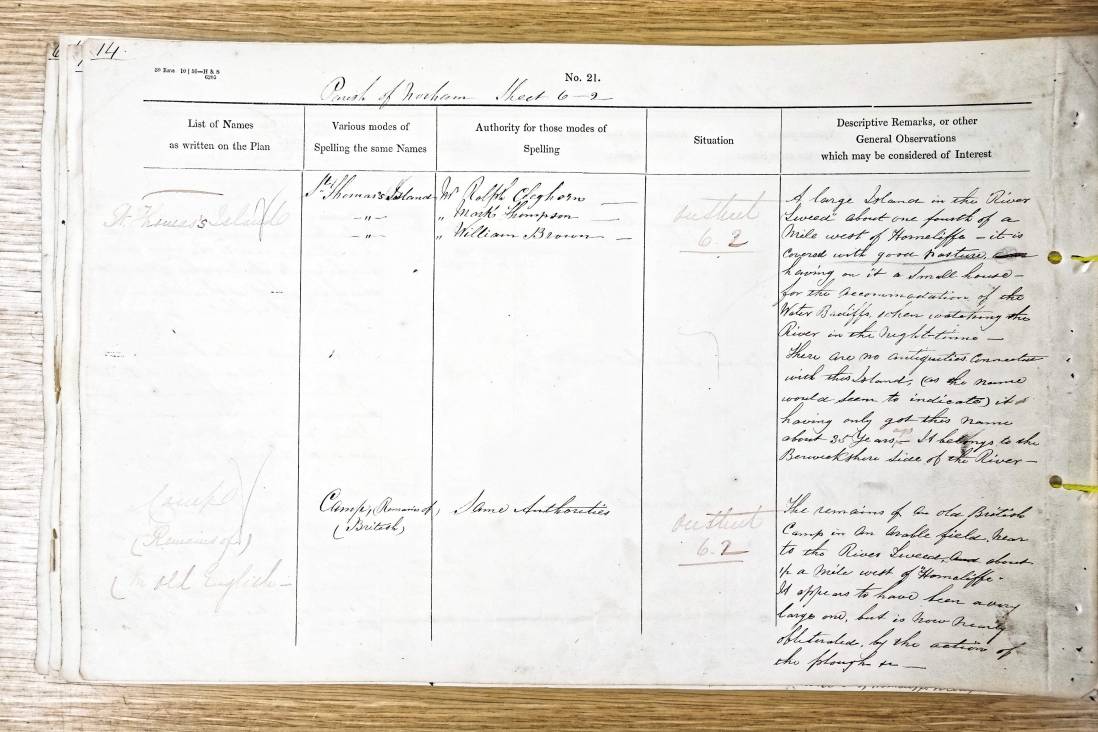 14.
No. 21.
Parish of Norham Sheet 6-2
List of Names
as written on the Plan
Various modes of
Spelling the same Names
Authority for those modes of
Spelling
Situation
Descriptive Remarks, or other
General Observations
which may be considered of Interest
St. Thomas's Island
St. Thomas's Island
—"—
—"—
Mr Ralph Cleghorn —
„ Mark Thompson —
„ William Brown —
6.2
A large Island in the River
"Tweed" about one fourth of a
Mile west of Horncliffe — it is
Covered with good pasture,
having on it a small house —
for the accommodation of the
Water Bailiffs, when watching the
River in the night-time —
There are no antiquities Connected
with this Island, (as the name
would seem to indicate) it
having only got this name
about 35 Years ago — It belongs to the
Berwickshire side of the River —
Camp
(Remains of)
(In old English —
Camp, (Remains of,
(British)
Same Authorities
6.2
The remains of an old British
Camp in an arable field, near
to the River Tweed, and about
a Mile west of "Horncliffe".
It appears to have been a very
large one, but is now nearly
obliterated, by the action of
the plough &c —